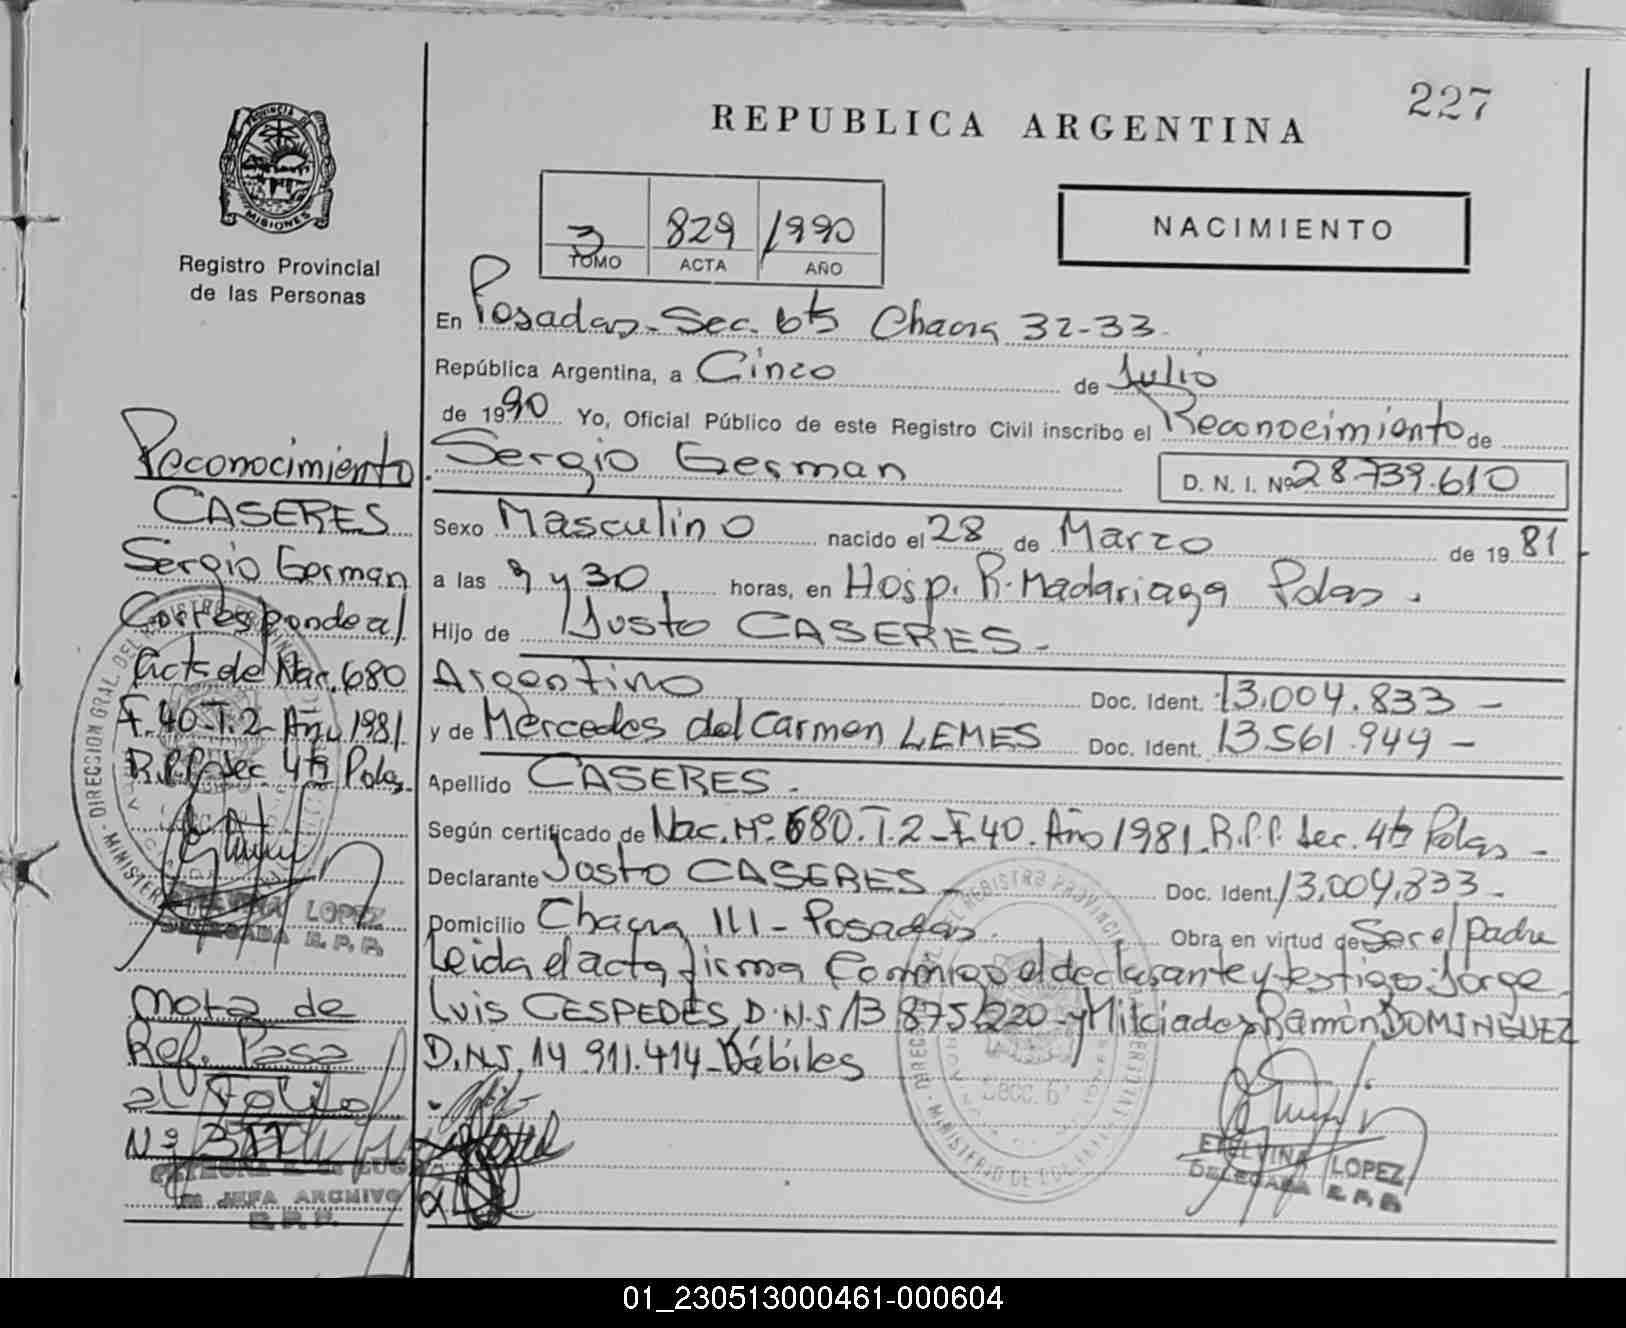 227
REPUBLICA ARGENTINA
PROVINCIA DE
MISIONES
Registro Provincial
de las Personas
3 829 1990
TOMO ACTA AÑO
NACIMIENTO
En Posadas - Sec. 6ta Chacra 32-33-
República Argentina, a Cinco de Julio
de 1990 Yo, Oficial Público de este Registro Civil inscribo el Reconocimiento de
Sergio German D. N. I. Nº 28.739.610
Sexo Masculino nacido el 28 de Marzo de 1981
a las 9 y 30 horas, en Hosp. R. Madariaga Pdas.
Hijo de Justo CASERES -
Argentino Doc. Ident. 13.004.833 -
y de Mercedes del Carmen LEMES Doc. Ident. 13.561.949 -
Apellido CASERES.
Según certificado de Nac. Nº 680. T.2 - F.40. Año 1981. R.P.P. Sec. 4ta Pdas -
Declarante Justo CASERES - Doc. Ident. 13.004.833 -
Domicilio Chacra 111 - Posadas. Obra en virtud de Ser el padre
Leida el acta firma conmigo el declarante y testigo: Jorge
Luis CESPEDES, D.N.I 13.875.220 - y Milciades Ramón DOMINGUEZ
D.N.I. 14.911.414 - Hábiles
Reconocimiento
CASERES
Sergio German
Corresponde al
Acta de Nac. 680
F. 40 - T. 2 - Año 1981
R.P.P. Sec 4ta Pdas.
LOPEZ
DELEGADA R. P. P.
Nota de
Ref. Pasa
al Folio
Nº
JEFA ARCHIVO
R. P. P.
ETELVINA LOPEZ
DELEGADA R. P. P.
01_230513000461-000604